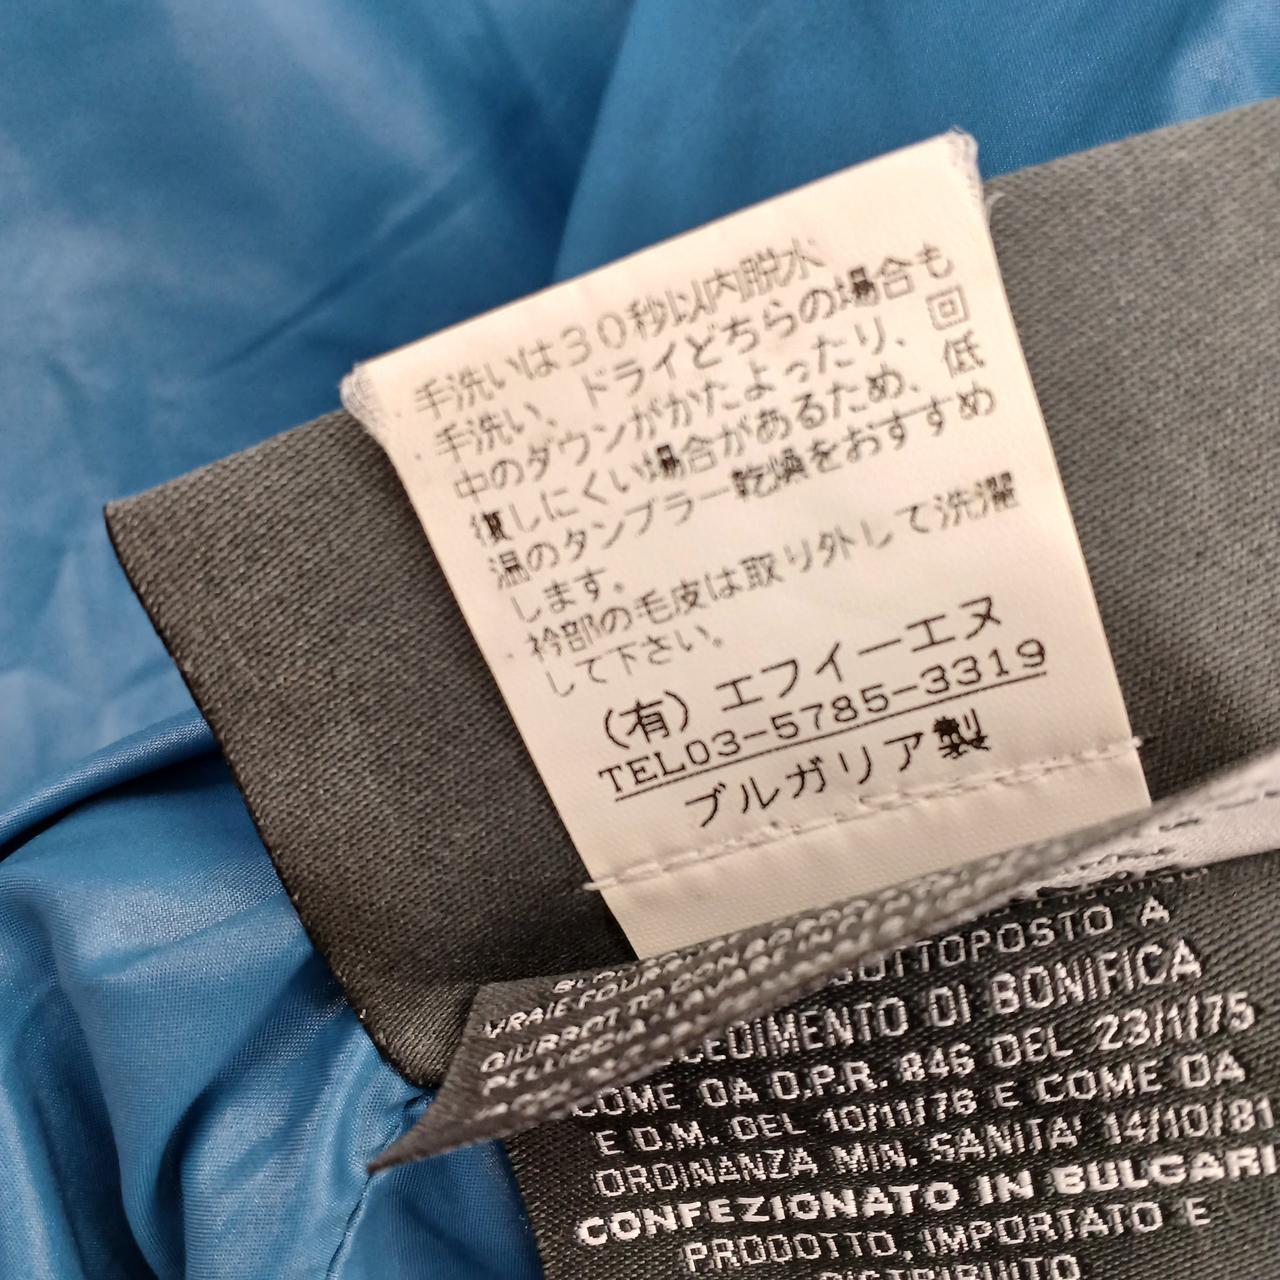 手洗いは30秒以内脱水
・手洗い、ドライどちらの場合も
中のダウンがかたよったり、回
復しにくい場合があるため、低
温のタンブラー乾燥をおすすめ
します。
・衿部の毛皮は取り外して洗濯
して下さい。
(有)エフイーエヌ
TEL03-5785-3319
ブルガリア製
VRAIE FOURRURE
GIUBBOTTO CON BORDO IN
PELLICCIA. LAVARE
SOTTOPOSTO A
CEDIMENTO DI BONIFICA
COME DA D.P.R. 846 DEL 23/1/75
E D.M. DEL 10/11/76 E COME DA
ORDINANZA MIN. SANITA' 14/10/81
CONFEZIONATO IN BULGARI
PRODOTTO, IMPORTATO E
DISTRIBUITO